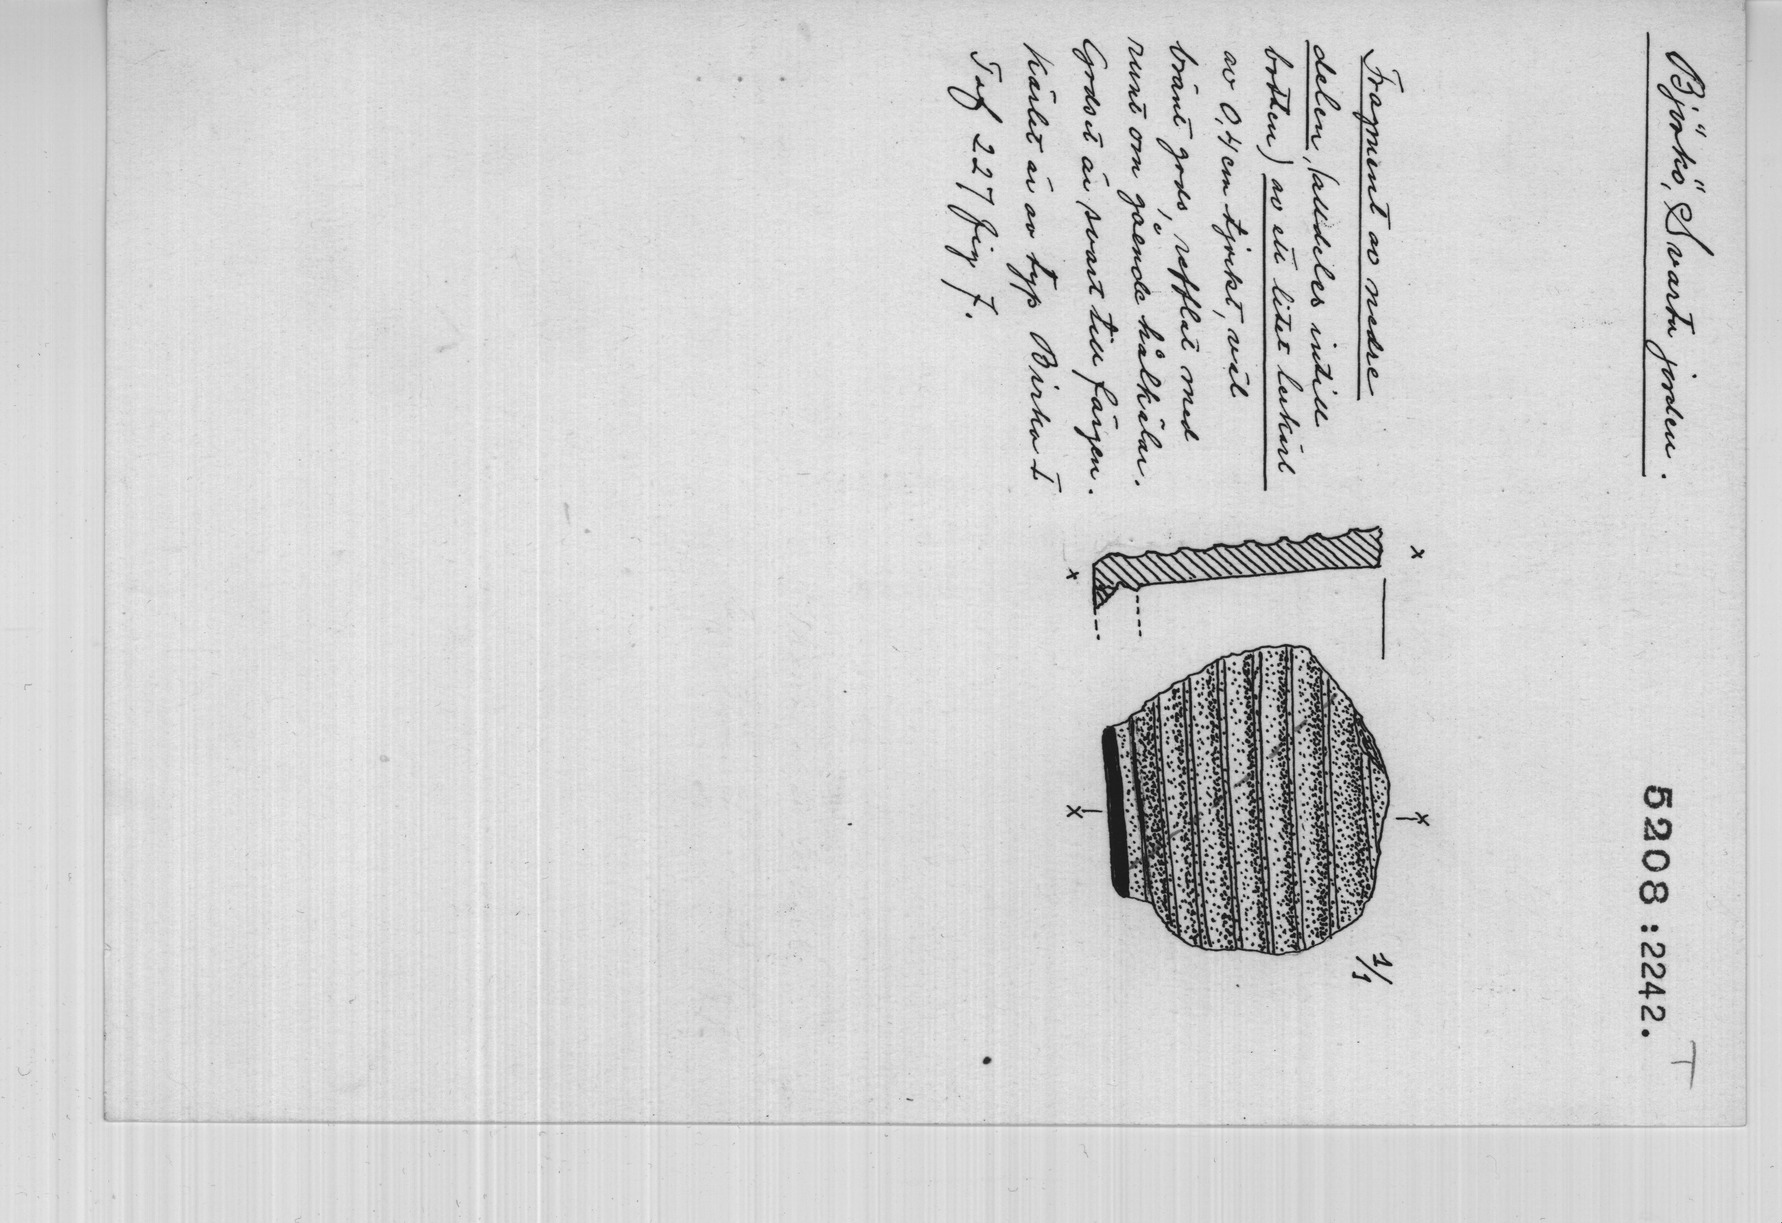 Björkö, Svarta jorden.
5208:2242.
T
Fragment av nedre
delen, (alldeles intill
botten) av ett litet lerkärl
av 0,4 cm tjockt, väl
bränt gods, refflat med
runt om gående hålkälar.
Godset är svart till färgen.
Kärlet är av typ Birka I
Taf 227 fig 7.
x
x
x
x
1/1